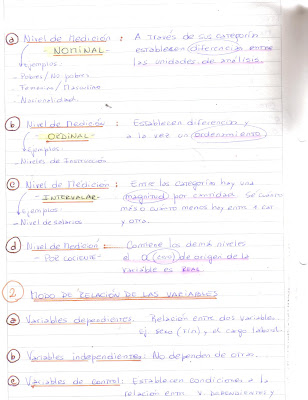 a Nivel de Medición : A través de sus categorías
- NOMINAL - establecen diferencias entre
ejemplos: las unidades de análisis.
- Pobres / No pobres
- Femenino / Masculino
- Nacionalidad.
b Nivel de Medición : Establecen diferencias y
- ORDINAL - a la vez un ordenamiento
Ejemplos
- Niveles de Instrucción.
c Nivel de Medición : Entre las categorías hay una
- INTERVALAR - magnitud por cantidades. Se cuanto
Ejemplos más o cuanto menos hay entre 1 cat
- Nivel de salarios y otra.
d Nivel de Medición : Contiene los demás niveles
- POR COCIENTE - el 0 (cero) de origen de la
variable es REAL
2 MODO DE RELACIÓN DE LAS VARIABLES
a Variables dependientes: Relación entre dos variables.
Ej sexo (F/M) y el cargo laboral
b Variables independientes: No dependen de otras.
c Variables de control: Establecen condiciones a la
relación entre V. DEPENDIENTES Y